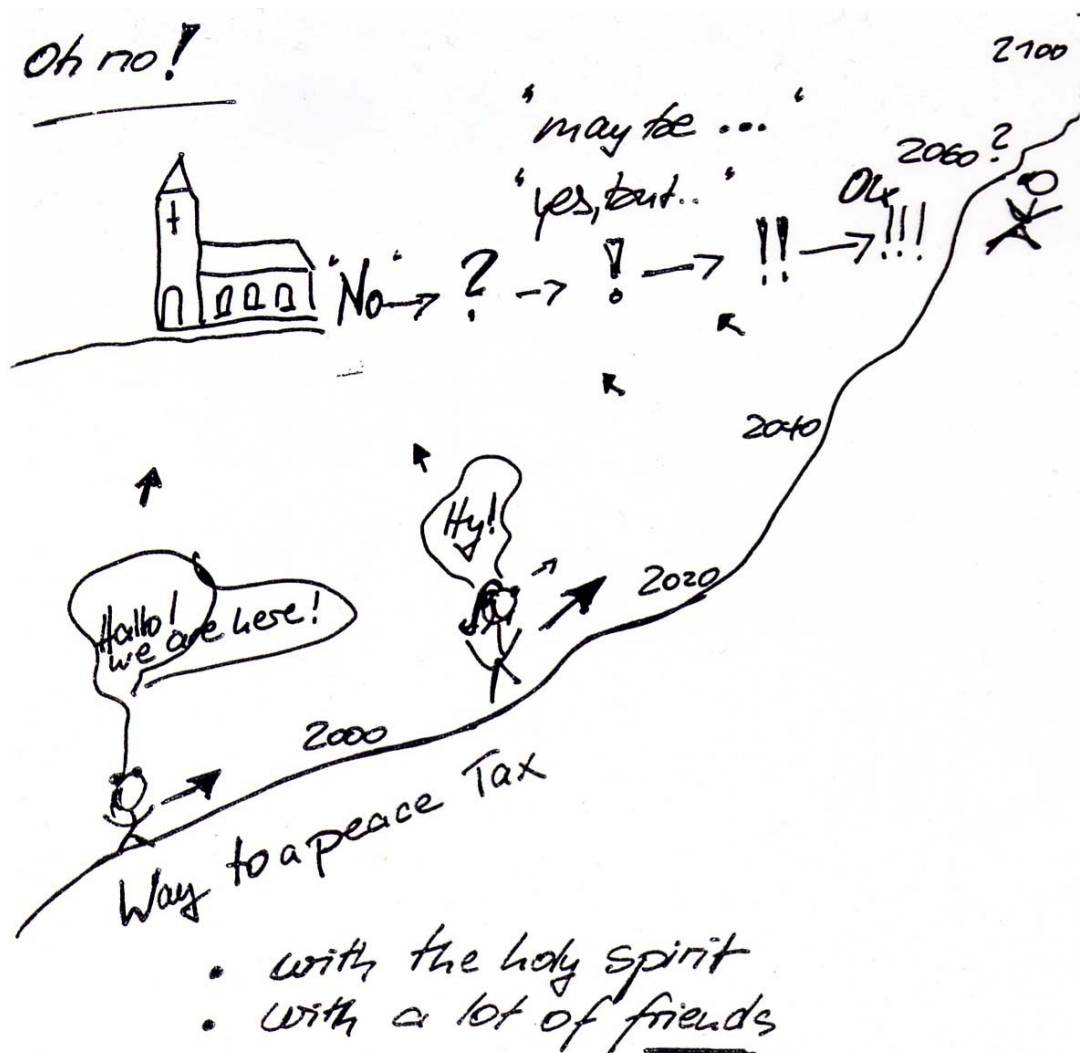 Oh no!
2100
"maybe ..."
2060?
"yes, but.."
Ok
"No" → ? → ! → !! → !!!
2040
Hy!
2020
Hallo!
we are here!
2000
Way to a peace Tax
• with the holy spirit
• with a lot of friends